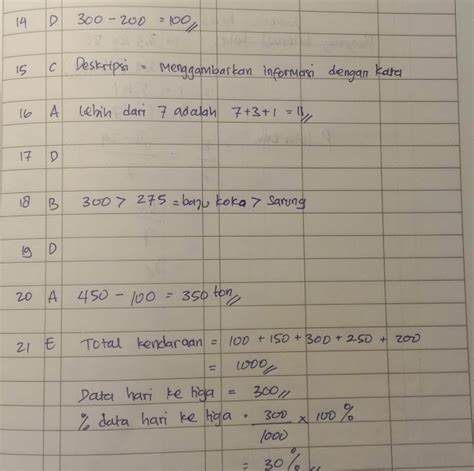 14 D 300 - 200 = 100//
15 C Deskripsi = Menggambarkan informasi dengan kata
16 A Lebih dari 7 adalah 7+3+1 = 11//
17 D
18 B 300 > 275 = baju koka > Sarung
19 D
20 A 450 - 100 = 350 ton//
21 E Total kendaraan = 100 + 150 + 300 + 250 + 200
= 1000//
Data hari ke tiga = 300//
% data hari ke tiga = 300/1000 x 100%
= 30%//